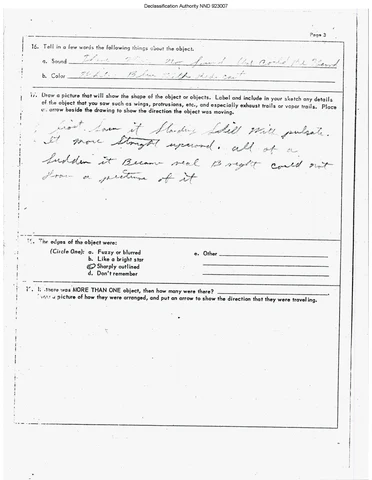 Declassification Authority NND 923007
Page 3
16. Tell in a few words the following things about the object.
a. Sound There was no sound that could be found
b. Color White Blue
17. Draw a picture that will show the shape of the object or objects. Label and include in your sketch any details
of the object that you saw such as wings, protrusions, etc., and especially exhaust trails or vapor trails. Place
an arrow beside the drawing to show the direction the object was moving.
first saw it still pulsate.
It move straight upward. all of a
sudden it Became real Bright could not
draw a picture of it
18. The edges of the object were:
(Circle One): a. Fuzzy or blurred
b. Like a bright star
c. Sharply outlined
d. Don't remember
e. Other
19. If there was MORE THAN ONE object, then how many were there?
Draw a picture of how they were arranged, and put an arrow to show the direction that they were traveling.